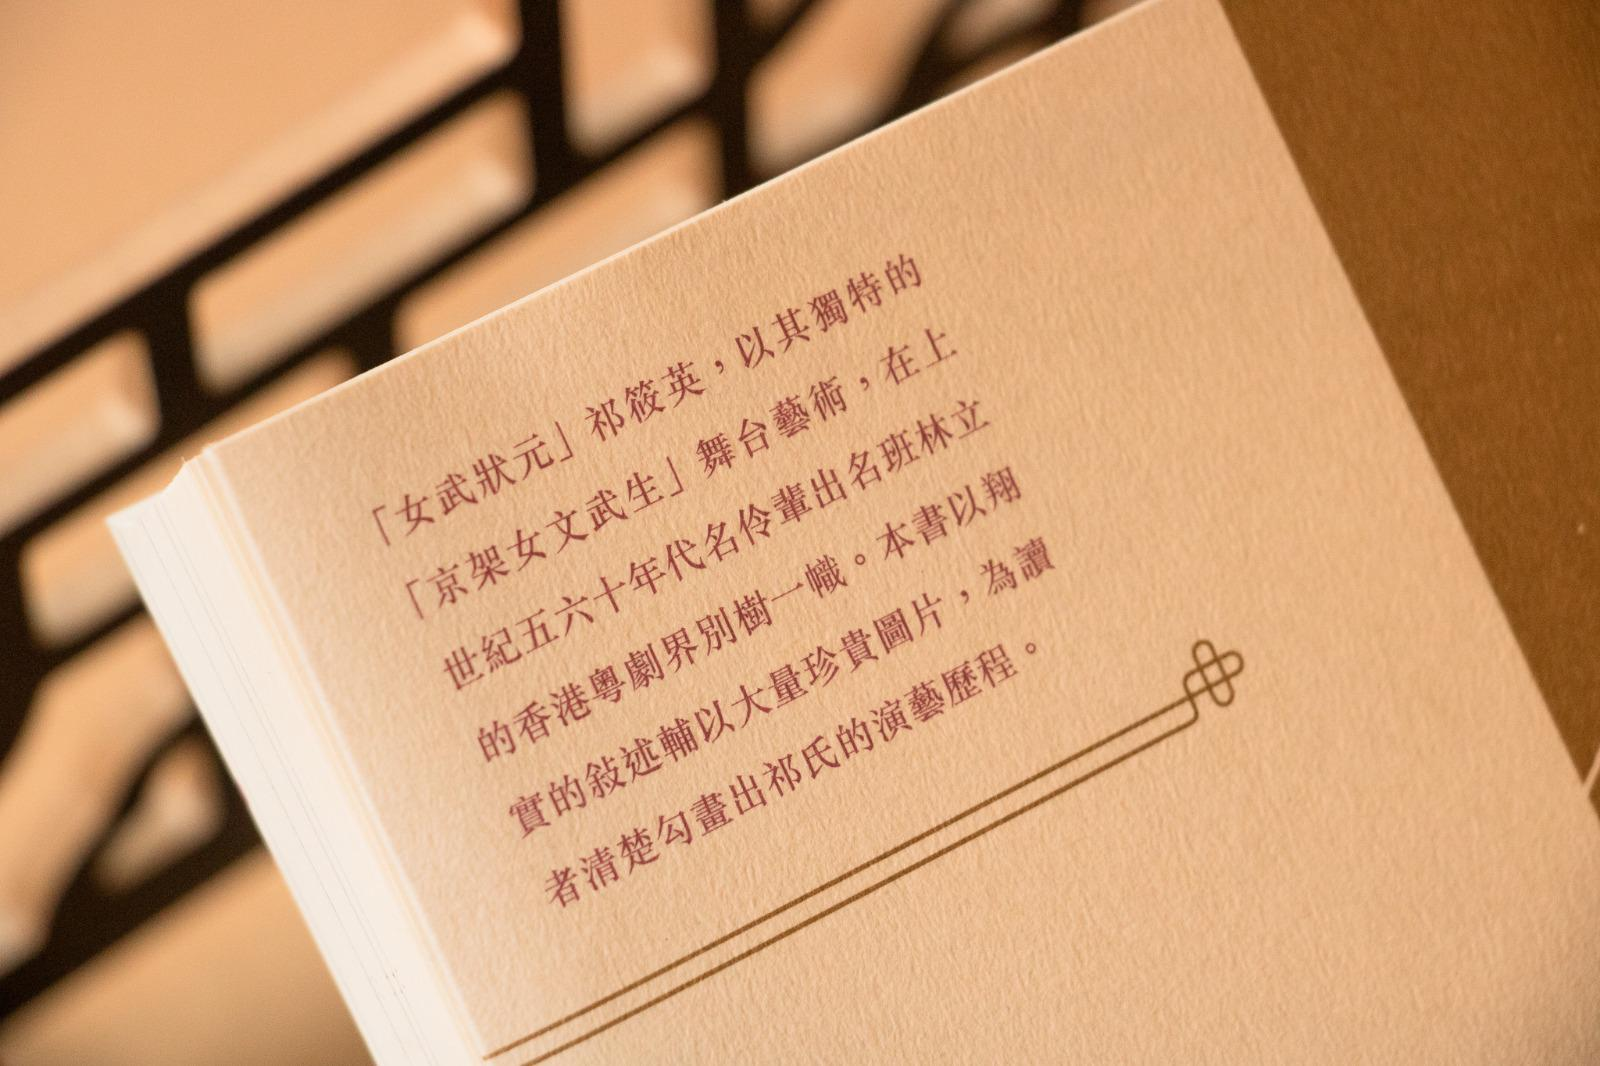 「女武狀元」祁筱英，以其獨特的
「京架女文武生」舞台藝術，在上
世紀五六十年代名伶輩出名班林立
的香港粵劇界別樹一幟。本書以翔
實的敍述輔以大量珍貴圖片，為讀
者清楚勾畫出祁氏的演藝歷程。